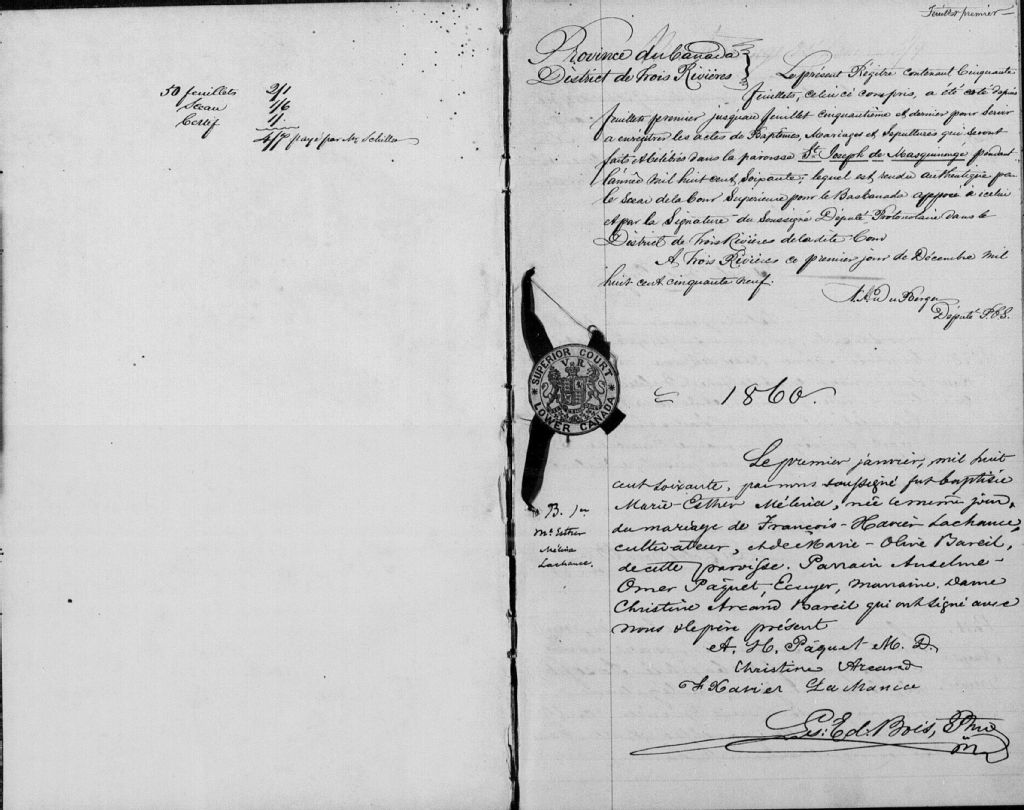 50 feuillets 2/1
Sceau 1/6
Certif 1/.
4/7 payé par Mr
Feuillet premier
Province du Canada
District de Trois Rivières
Le présent Régitre contenant Cinquante
feuillets, celui ci compris, a été coté depuis
feuillet premier jusqu'au feuillet cinquantième et dernier pour servir
a enrégitrer les actes de Baptêmes, Mariages et Sepultures qui seront
faits et célébrés dans la paroisse St. Joseph de Maskinongé pendant
l'année mil huit cent soixante; lequel est rendu authentique par
le Sceau de la Cour Supérieure pour le Bas Canada apposé à icelui
et par la Signature du Soussigné Député Protonotaire dans le
District de Trois Rivières de la dite Cour
A Trois Rivières ce premier jour de Décembre mil
huit cent cinquante neuf.
Député P.C.S.
SUPERIOR COURT
V R
LOWER CANADA
1860.
Le premier janvier, mil huit
cent soixante, par nous soussigné fut baptisée
Marie-Esther Mélina, née le même jour,
du mariage de François-Xavier Lachance,
cultivateur, et de Marie-Olive Bareil,
de cette paroisse. Parrain Anselme-
Omer Pâquet, Ecuyer, marraine Dame
Christine Arcand Bareil qui ont signé avec
nous & le père présent
B. 1er
Me. Esther
Mélina
Lachance.
A. H. Pâquet M. D.
Christine Arcand
F Xavier Lachance
Ls: Ed. Bois, Ptre